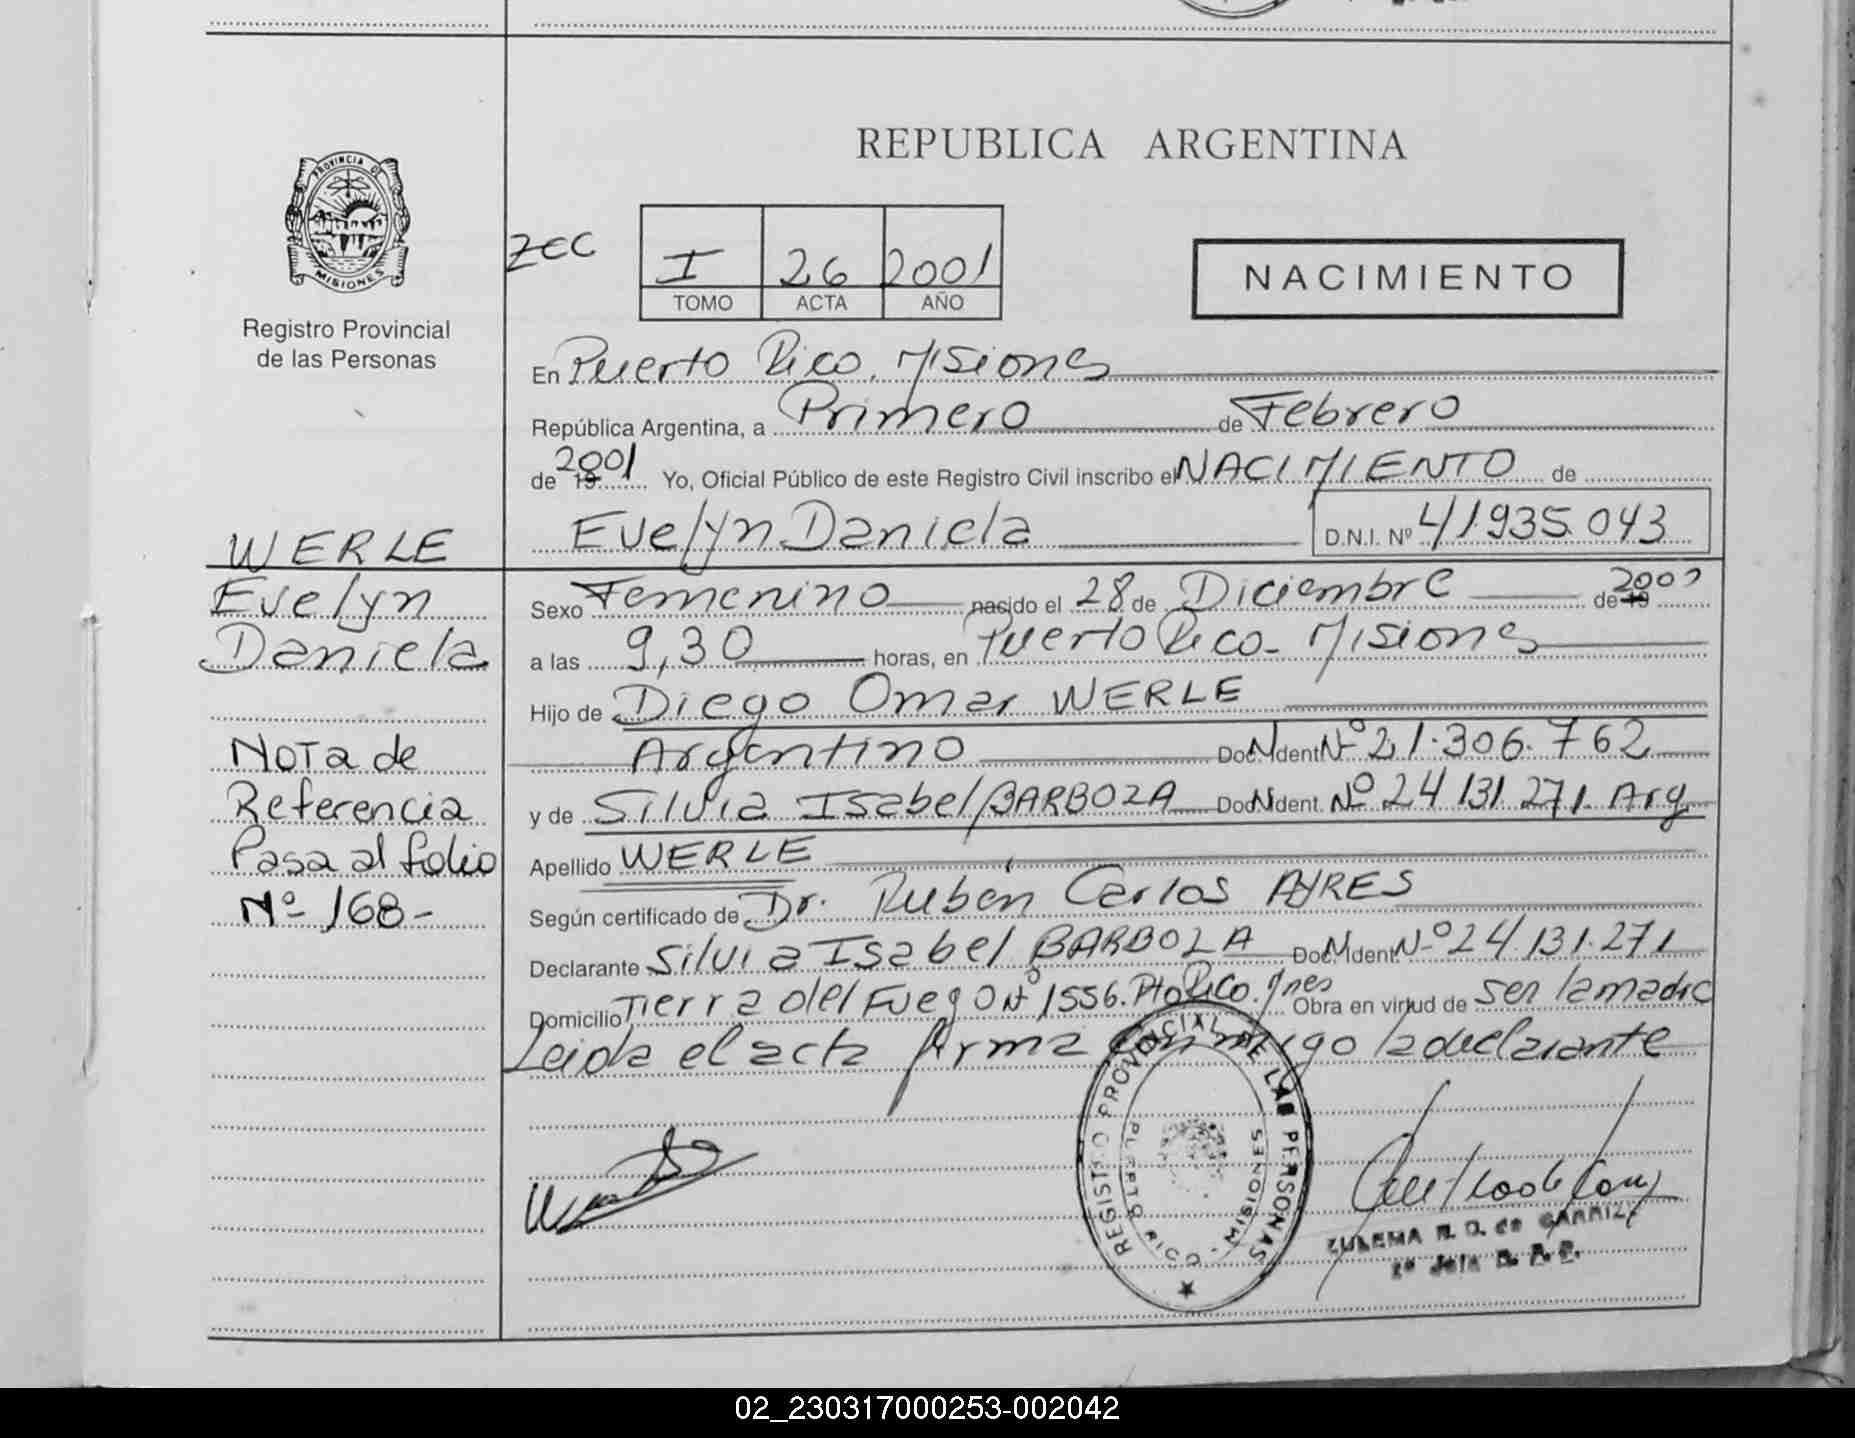 REPUBLICA ARGENTINA
PROVINCIA DE
MISIONES
Registro Provincial
de las Personas
I 26 2001
TOMO ACTA AÑO
NACIMIENTO
En Puerto Rico. Misiones
República Argentina, a Primero de Febrero
de 19 2001 Yo, Oficial Público de este Registro Civil inscribo el NACIMIENTO de
Evelyn Daniela D.N.I. Nº 41.935.043
WERLE
Evelyn
Daniela
Nota de
Referencia
Pasa al folio
Nº 168-
Sexo Femenino nacido el 28 de Diciembre de 19
a las 9,30 horas, en Puerto Rico - Misiones
Hijo de Diego Omar WERLE
Argentino Doc. Ident. Nº 21.306.762
y de Silvia Isabel BARBOZA Doc. Ident. Nº 24.131.271. Arg
Apellido WERLE
Según certificado de Dr. Rubén Carlos AYRES
Declarante Silvia Isabel BARBOZA Doc. Ident Nº 24.131.271
Domicilio Tierra del Fuego Nº 1556. Pto Rico. Mnes Obra en virtud de ser la madre
Leida el acta firma conmigo la declarante
REGISTRO PROVINCIAL DE LAS PERSONAS
PUERTO RICO - MISIONES
ZULEMA R. O. de
02_230317000253-002042